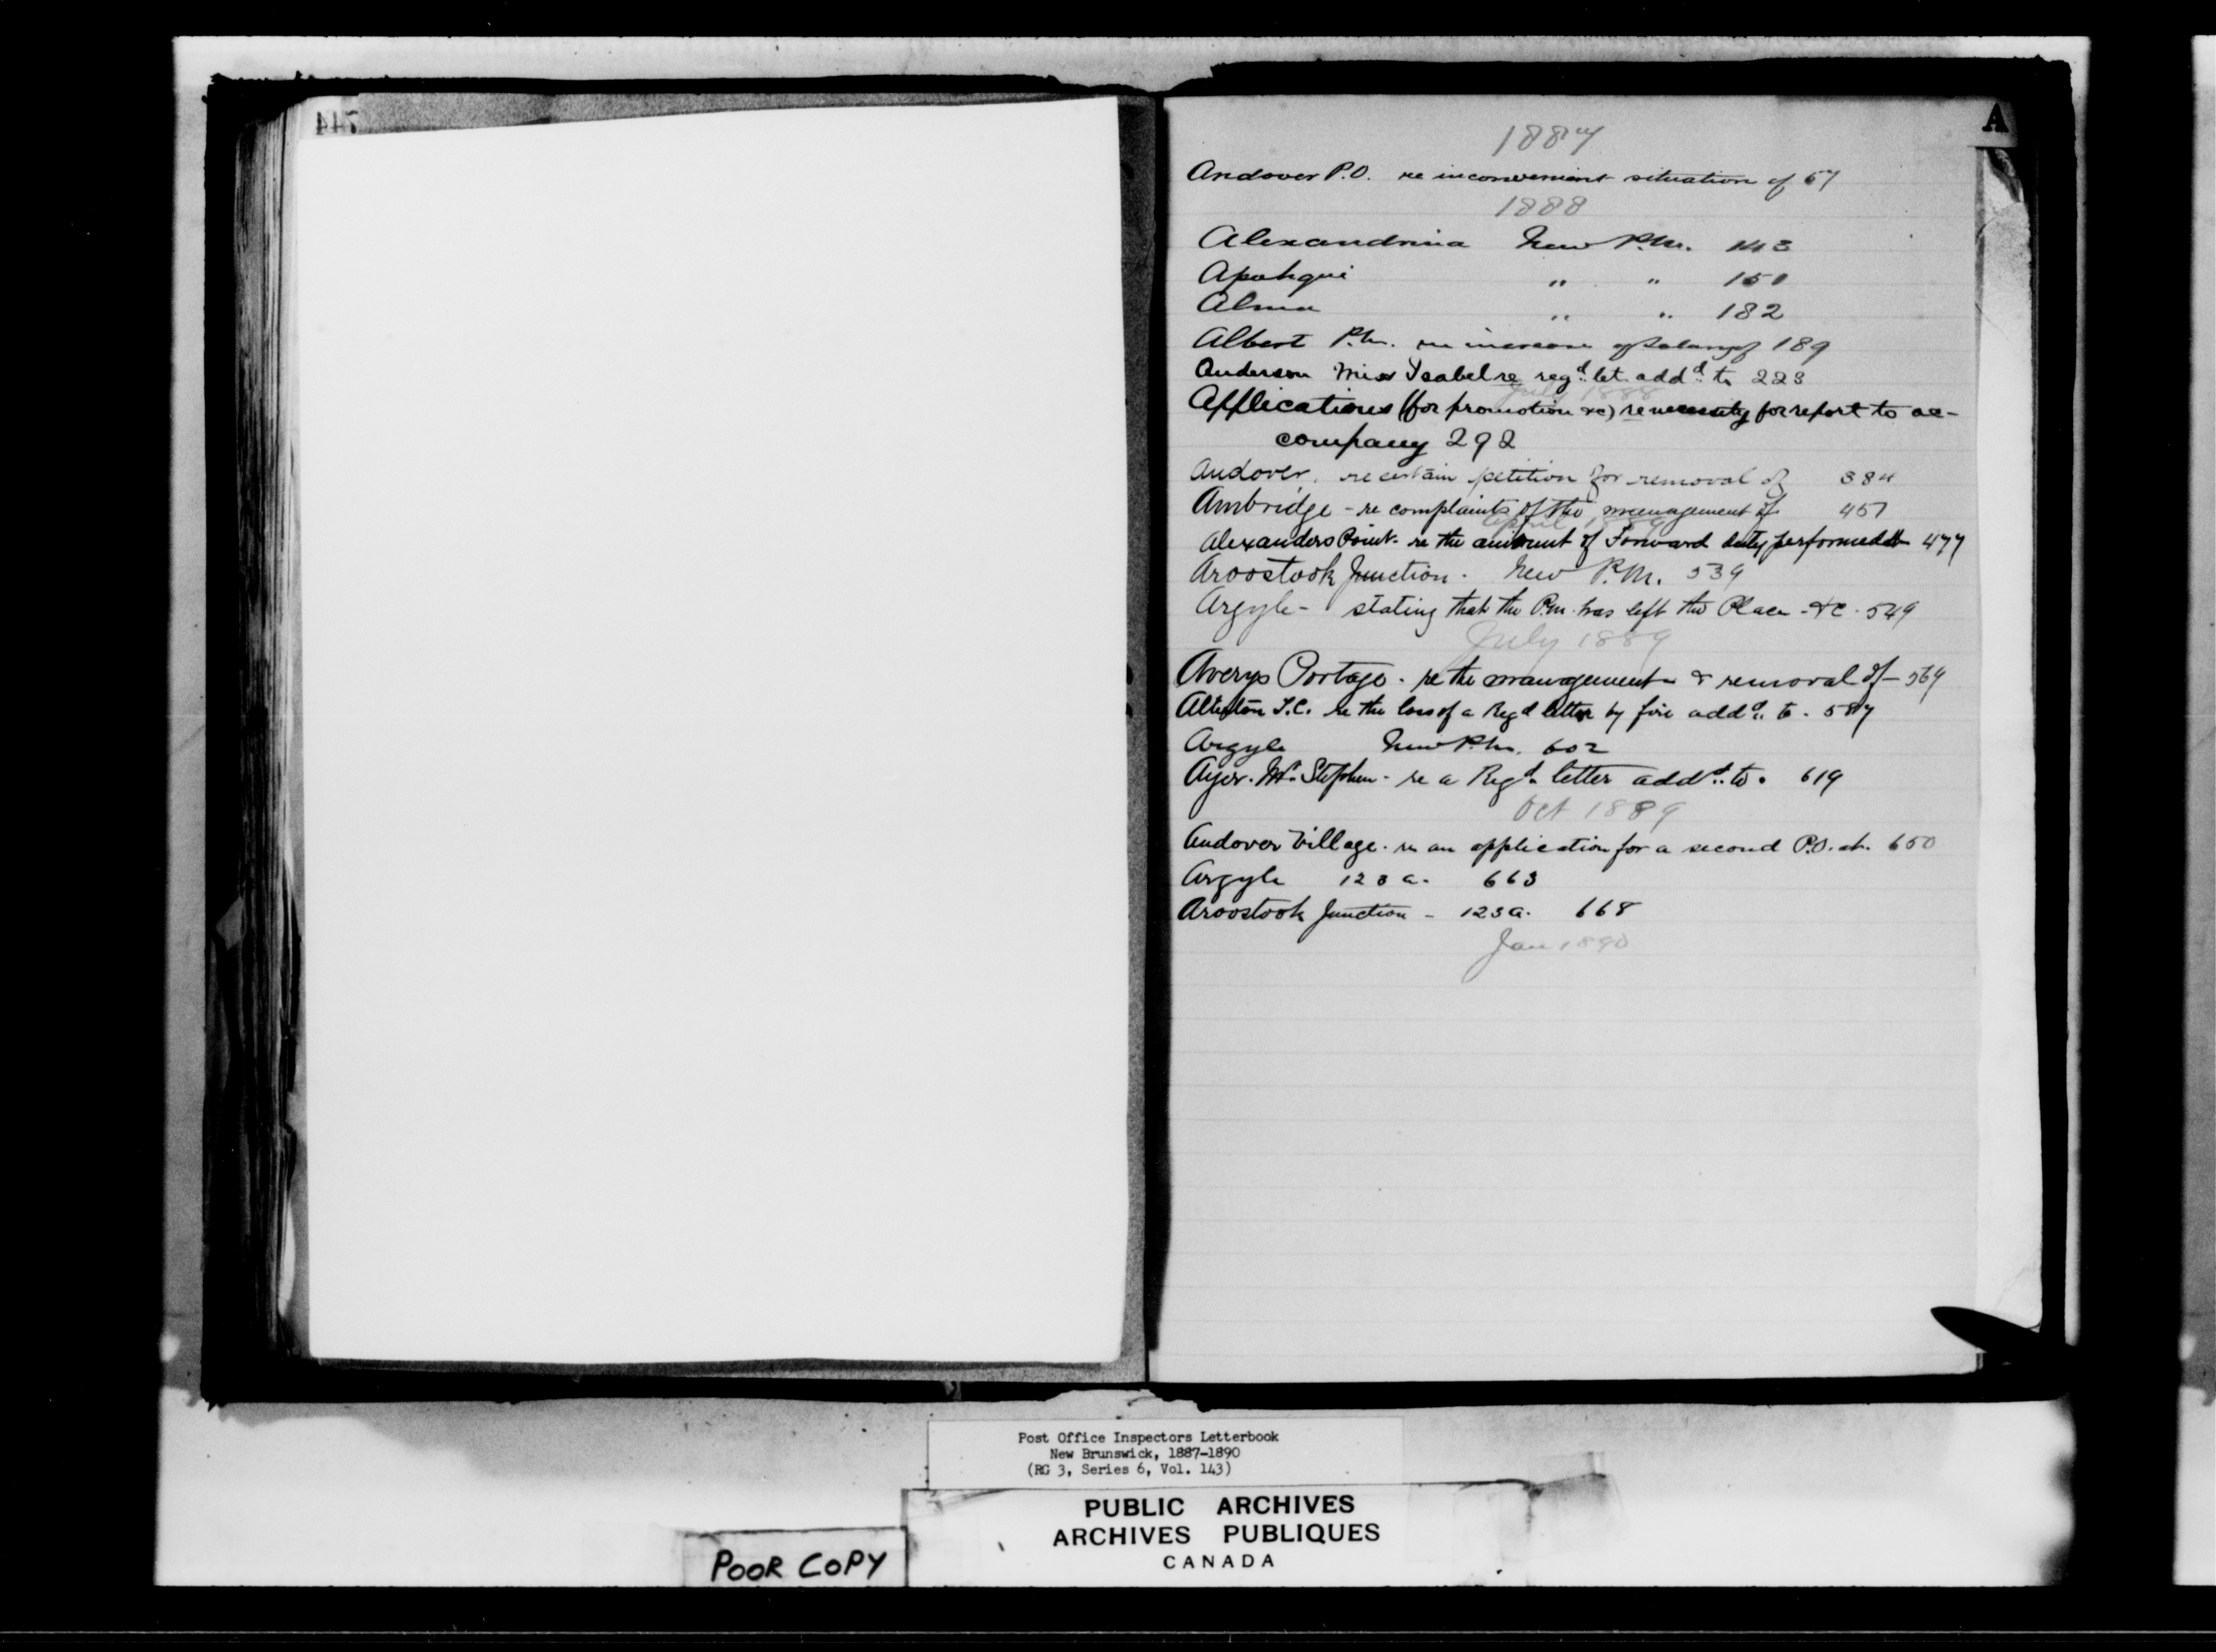 744
A
1887
Andover P.O. re inconvenient situation of 57
1888
Alexandrina New P.M. 143
Apohqui " " 150
Alma " " 182
Albert P.M. re increase of Salary of 189
Anderson Miss Isabel re regd let. addd to 223
July 1888
Applications (for promotion &c) re necessity for report to ac-
company 292
Andover, re certain petition for removal of 384
Ambridge - re complaints of the management of 457
April 1889
Alexanders Point - re the amount of Forward duty performed at 477
Aroostook Junction. New P.M. 539
Argyle - stating that the P.M. has left the Place - &c. 549
July 1889
Averys Portage - re the management & removal of - 564
re the loss of a Regd letter by fire addd to - 587
Argyle New P.M. 602
Ayer. Mr. Stephen - re a Regd letter addd to. 619
Oct 1889
Andover Village. re an application for a second P.O. at. 650
Argyle 123a. 663
Aroostook Junction - 123a. 668
Jan 1890
Post Office Inspectors Letterbook
New Brunswick, 1887-1890
(RG 3, Series 6, Vol. 143)
PUBLIC ARCHIVES
ARCHIVES PUBLIQUES
CANADA
POOR COPY